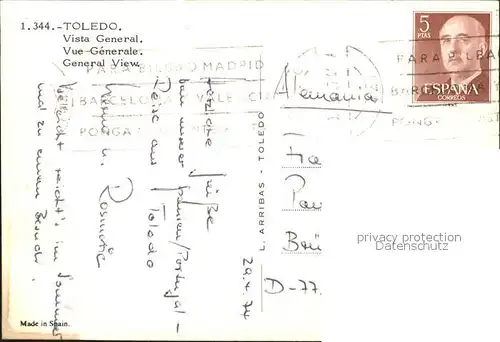 1.344.-TOLEDO.
Vista General.
Vue-Génerale.
General View.
PARA BILBAO MADRID
BARCELONA VALE
PONGA
5
PTAS
ESPAÑA
CORREOS
PARA BILBA
BAR
PONGA
Alemania
Herzliche Grüße
von unserer Spanien/Portugal-
Reise aus Toledo
u. Rosmarie
Vielleicht reicht's im Sommer
mal zu einem Besuch.
29.4.74
L. ARRIBAS - TOLEDO
D-77
privacy protection
Datenschutz
Made in Spain.